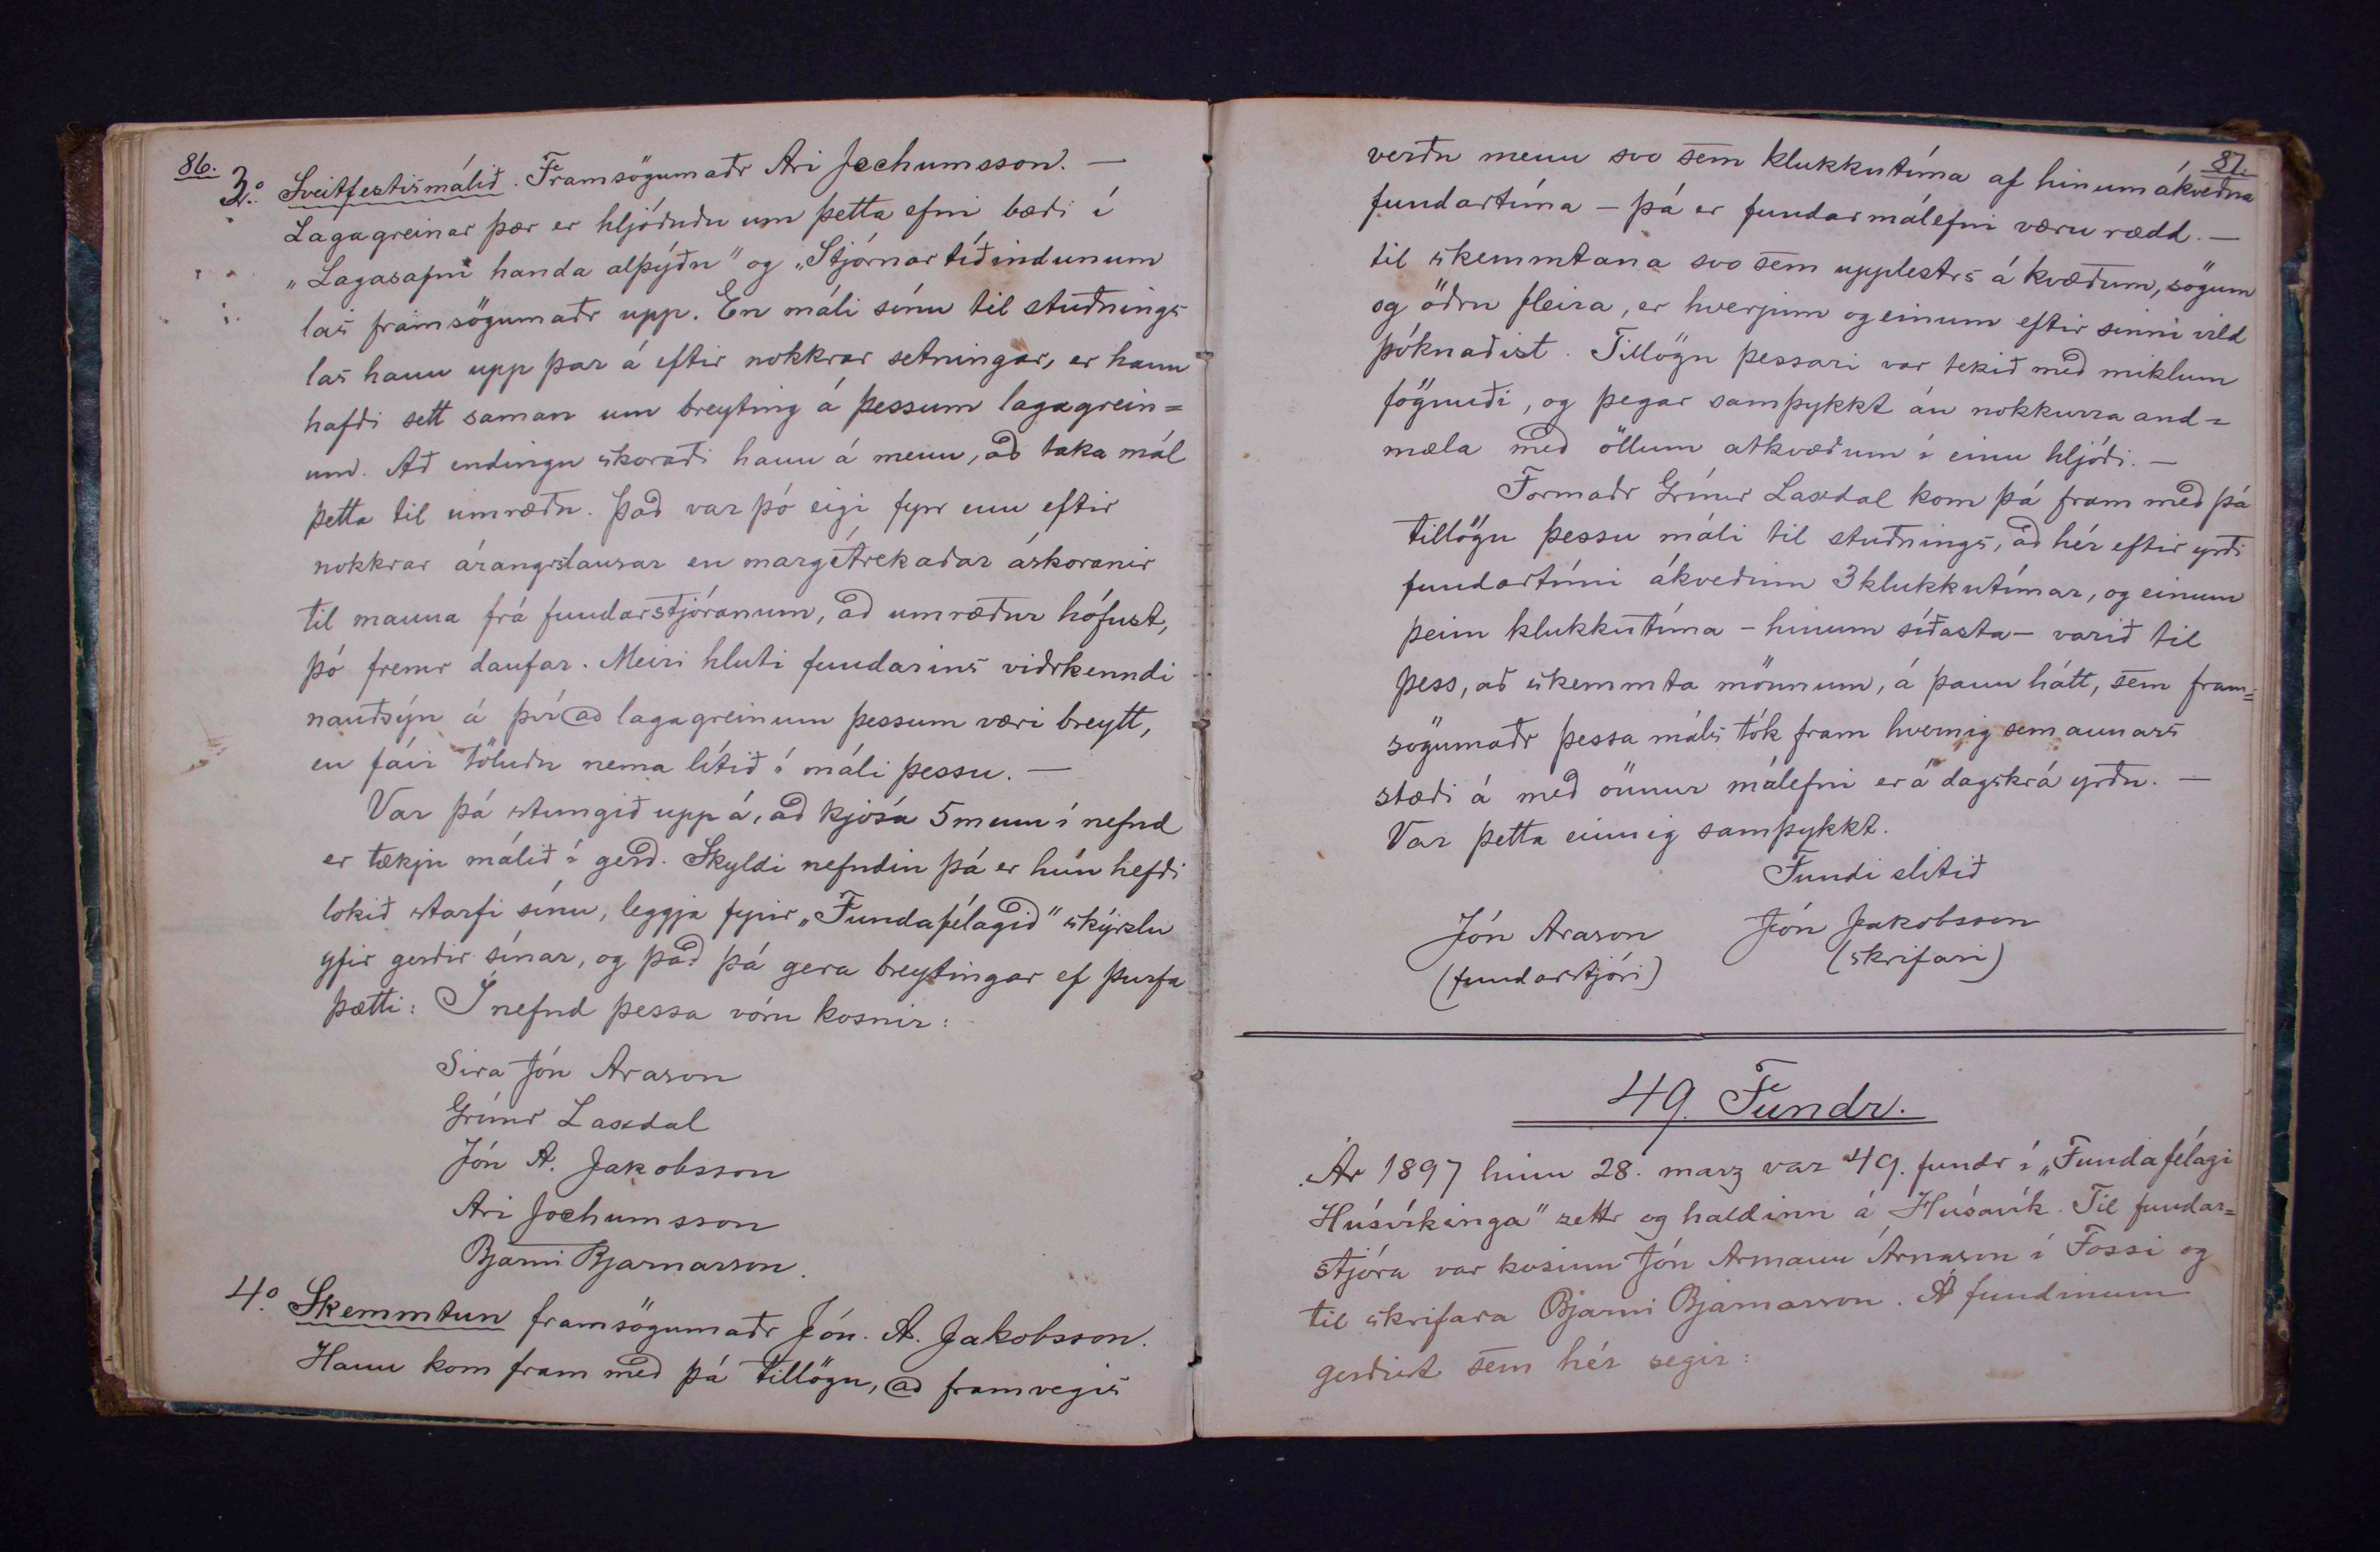 86.
3.º Sveitfestismálið. Framsögumaðr Ari Jochumsson. —
Lagagreinar þær er hljóðuðu um þetta efni bæði í
„Lagasafni handa alþýðu" og „Stjórnartíðindunum
las framsögumaðr upp. En máli sínu til stuðnings
las hann upp þar á eftir nokkrar setningar, er hann
hafði sett saman um breyting á þessum lagagrein=
um. Að endingu skoraði hann á menn, að taka mál
þetta til umræðu. Það var þó eigi fyr enn eftir
nokkrar árangrslausar en margítrekaðar áskoranir
til manna frá fundarstjóranum, að umræður hófust,
þó fremr daufar. Meiri hluti fundarins viðrkenndi
nauðsýn á því að lagagreinum þessum væri breytt,
en fáir töluðu nema lítið í máli þessu. —
Var þá stungið upp á, að kjósa 5 menn í nefnd
er tækju málið í gerð. Skyldi nefndin þá er hún hefði
lokið starfi sínu, leggja fyrir „Fundafélagið" skýrslu
yfir gerðir sínar, og það þá gera breytingar ef þurfa
þætti: Í nefnd þessa vóru kosnir:
Síra Jón Arason
Grímr Laxdal
Jón A. Jakobsson
Ari Jochumsson
Bjarni Bjarnarson.
4.º Skemmtun framsögumaðr Jón. A. Jakobsson.
Hann kom fram með þá tillögu, að framvegis
87.
verðu menn svo sem klukkutíma af hinum ákveðna
fundartíma – þá er fundarmálefni væru rædd. —
til skemmtana svo sem upplestrs á kvæðum, sögum
og öðru fleira, er hverjum og einum eftir sinni vild
þóknaðist. Tillögu þessari var tekið með miklum
fögnuði, og þegar samþykkt án nokkurra and=
mæla með öllum atkvæðum í einu hljóði. —
Formaðr Grímr Laxdal kom þá fram með þá
tillögu þessu máli til stuðnings, að hér eftir yrði
fundartími ákveðinn 3 klukkutímar, og einum
þeim klukkutíma – hinum síðasta – varið til
þess, að skemmta mönnum, á þann hátt, sem fram=
sögumaðr þessa máls tók fram hvernig sem annars
stæði á með önnur málefni er á dagskrá yrðu. —
Var þetta einnig samþykkt.
Fundi slitið
Jón Arason Jón Jakobsson
(fundarstjóri) (skrifari)
49. Fundr.
Ár 1897 hinn 28. marz var 49. fundr í „Fundafélagi
Húsvíkinga" settr og haldinn á Húsavík. Til fundar=
stjóra var kosinn Jón Armann Árnason í Fossi og
til skrifara Bjarni Bjarnarson. Á fundinum
gerðist sem hér segir: